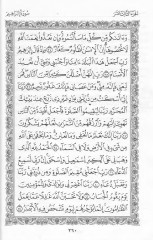 الجزء الثالث عشر
سورة إبراهيم
وءاتىكم من كل ما سألتموه وإن تعدوا نعمت الله
لا تحصوها إن الإنسن لظلوم كفار ٣٤ وإذ قال إبرهيم
رب اجعل هذا البلد ءامنا واجنبني وبني أن نعبد الأصنام
٣٥ رب إنهن أضللن كثيرا من الناس فمن تبعني فإنه
مني ومن عصاني فإنك غفور رحيم ٣٦ ربنا إني أسكنت
من ذريتي بواد غير ذي زرع عند بيتك المحرم ربنا
ليقيموا الصلوة فاجعل أفئدة من الناس تهوي إليهم
وارزقهم من الثمرت لعلهم يشكرون ٣٧ ربنا إنك
تعلم ما نخفي وما نعلن وما يخفى على الله من شيء في
الأرض ولا في السماء ٣٨ الحمد لله الذي وهب لي على
الكبر إسمعيل وإسحق إن ربي لسميع الدعاء ٣٩
رب اجعلني مقيم الصلوة ومن ذريتي ربنا وتقبل
دعاء ٤٠ ربنا اغفر لي ولولدي وللمؤمنين يوم يقوم
الحساب ٤١ ولا تحسبن الله غفلا عما يعمل
الظلمون إنما يؤخرهم ليوم تشخص فيه الأبصر ٤٢
٢٦٠